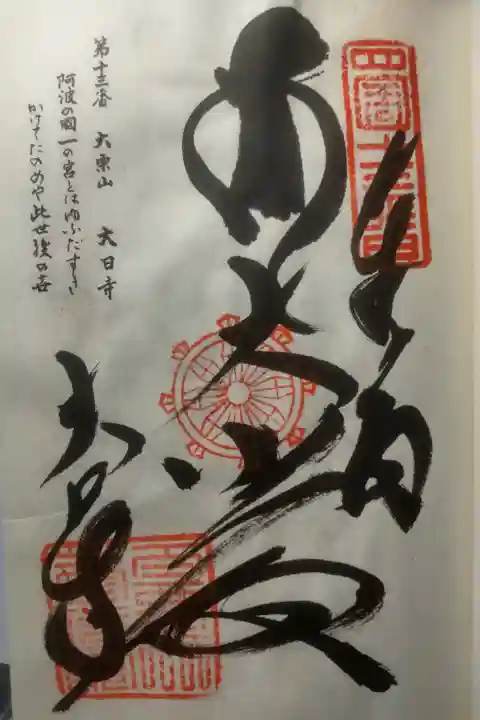 四国十三番
奉納
大悲殿
第十三番 大栗山 大日寺
阿波の国一の宮とはゆふだすき
かけてたのめや此世後の世
大日寺